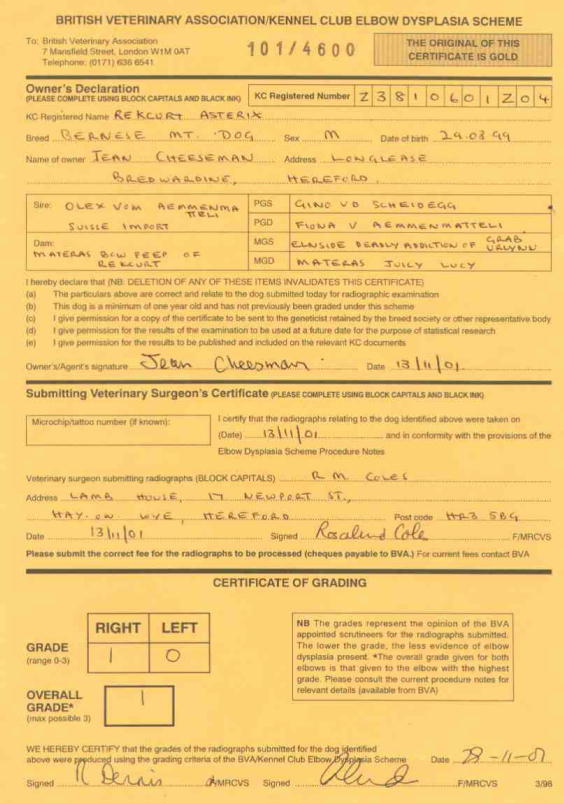 BRITISH VETERINARY ASSOCIATION/KENNEL CLUB ELBOW DYSPLASIA SCHEME
To: British Veterinary Association
7 Mansfield Street, London W1M 0AT
Telephone: (0171) 636 6541
101/4600
THE ORIGINAL OF THIS
CERTIFICATE IS GOLD
Owner's Declaration
(PLEASE COMPLETE USING BLOCK CAPITALS AND BLACK INK)
KC Registered Number Z 3 8 1 0 6 0 1 Z 0 4
KC Registered Name REKCURT ASTERIX
Breed BERNESE MT. DOG Sex M Date of birth 29.03 99
Name of owner JEAN CHEESEMAN Address LONGLEASE
BREDWARDINE, HEREFORD.
Sire: OLEX VOM AEMMENMATTELI
SUISSE IMPORT
PGS GINO VD SCHEIDEGG
PGD FIONA V AEMMENMATTELI
Dam:
MATERAS BOW PEEP OF
REKCURT
MGS DEADLY ADDICTION OF
MGD MATERAS JUICY LUCY
I hereby declare that (NB: DELETION OF ANY OF THESE ITEMS INVALIDATES THIS CERTIFICATE)
(a) The particulars above are correct and relate to the dog submitted today for radiographic examination
(b) This dog is a minimum of one year old and has not previously been graded under this scheme
(c) I give permission for a copy of the certificate to be sent to the geneticist retained by the breed society or other representative body
(d) I give permission for the results of the examination to be used at a future date for the purpose of statistical research
(e) I give permission for the results to be published and included on the relevant KC documents
Owner's/Agent's signature Jean Cheesman Date 13/11/01.
Submitting Veterinary Surgeon's Certificate (PLEASE COMPLETE USING BLOCK CAPITALS AND BLACK INK)
Microchip/tattoo number (if known):
I certify that the radiographs relating to the dog identified above were taken on
(Date) 13/11/01 and in conformity with the provisions of the
Elbow Dysplasia Scheme Procedure Notes
Veterinary surgeon submitting radiographs (BLOCK CAPITALS) R M COLES
Address LAMB HOUSE, 17 NEWPORT ST.,
HAY-ON WYE, HEREFORD Post code HR3 5BG
Date 13/11/01 Signed Rosalind Cole F/MRCVS
Please submit the correct fee for the radiographs to be processed (cheques payable to BVA.) For current fees contact BVA
CERTIFICATE OF GRADING
RIGHT LEFT
GRADE
(range 0-3)
1 0
OVERALL
GRADE*
(max possible 3)
1
NB The grades represent the opinion of the BVA
appointed scrutineers for the radiographs submitted.
The lower the grade, the less evidence of elbow
dysplasia present. *The overall grade given for both
elbows is that given to the elbow with the highest
grade. Please consult the current procedure notes for
relevant details (available from BVA)
WE HEREBY CERTIFY that the grades of the radiographs submitted for the dog identified
above were produced using the grading criteria of the BVA/Kennel Club Elbow Dysplasia Scheme Date 28-11-01
Signed R Dennis F/MRCVS Signed F/MRCVS 3/98